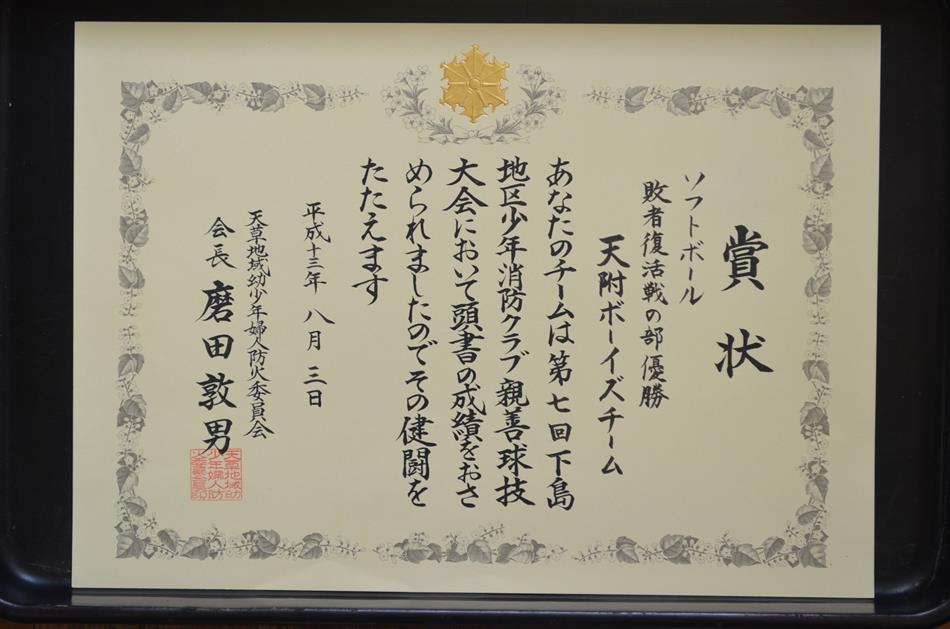 賞状
ソフトボール
敗者復活戦の部優勝
天附ボーイズチーム
あなたのチームは第七回下島
地区少年消防クラブ親善球技
大会において頭書の成績をおさ
められましたのでその健闘を
たたえます
平成十三年八月三日
天草地域幼少年婦人防火委員会
会長 磨田敦男